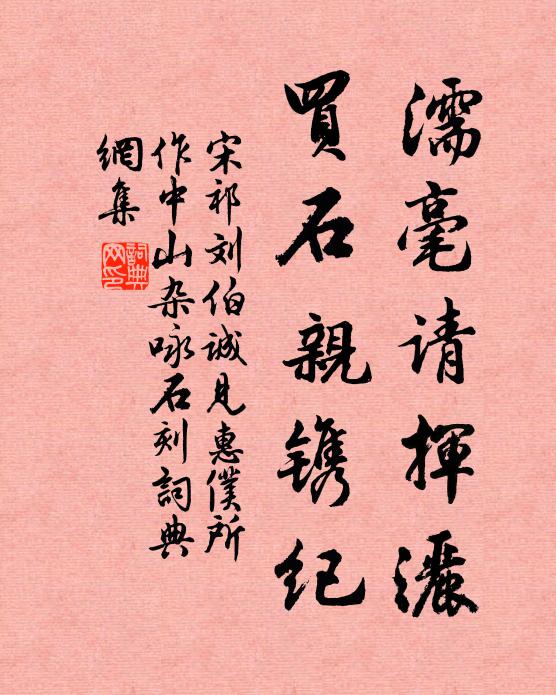 濡毫请揮灑
買石親鎸纪
宋祁刘伯诚见惠僕所
作中山杂咏石刻詞典
網集
詞典
网印